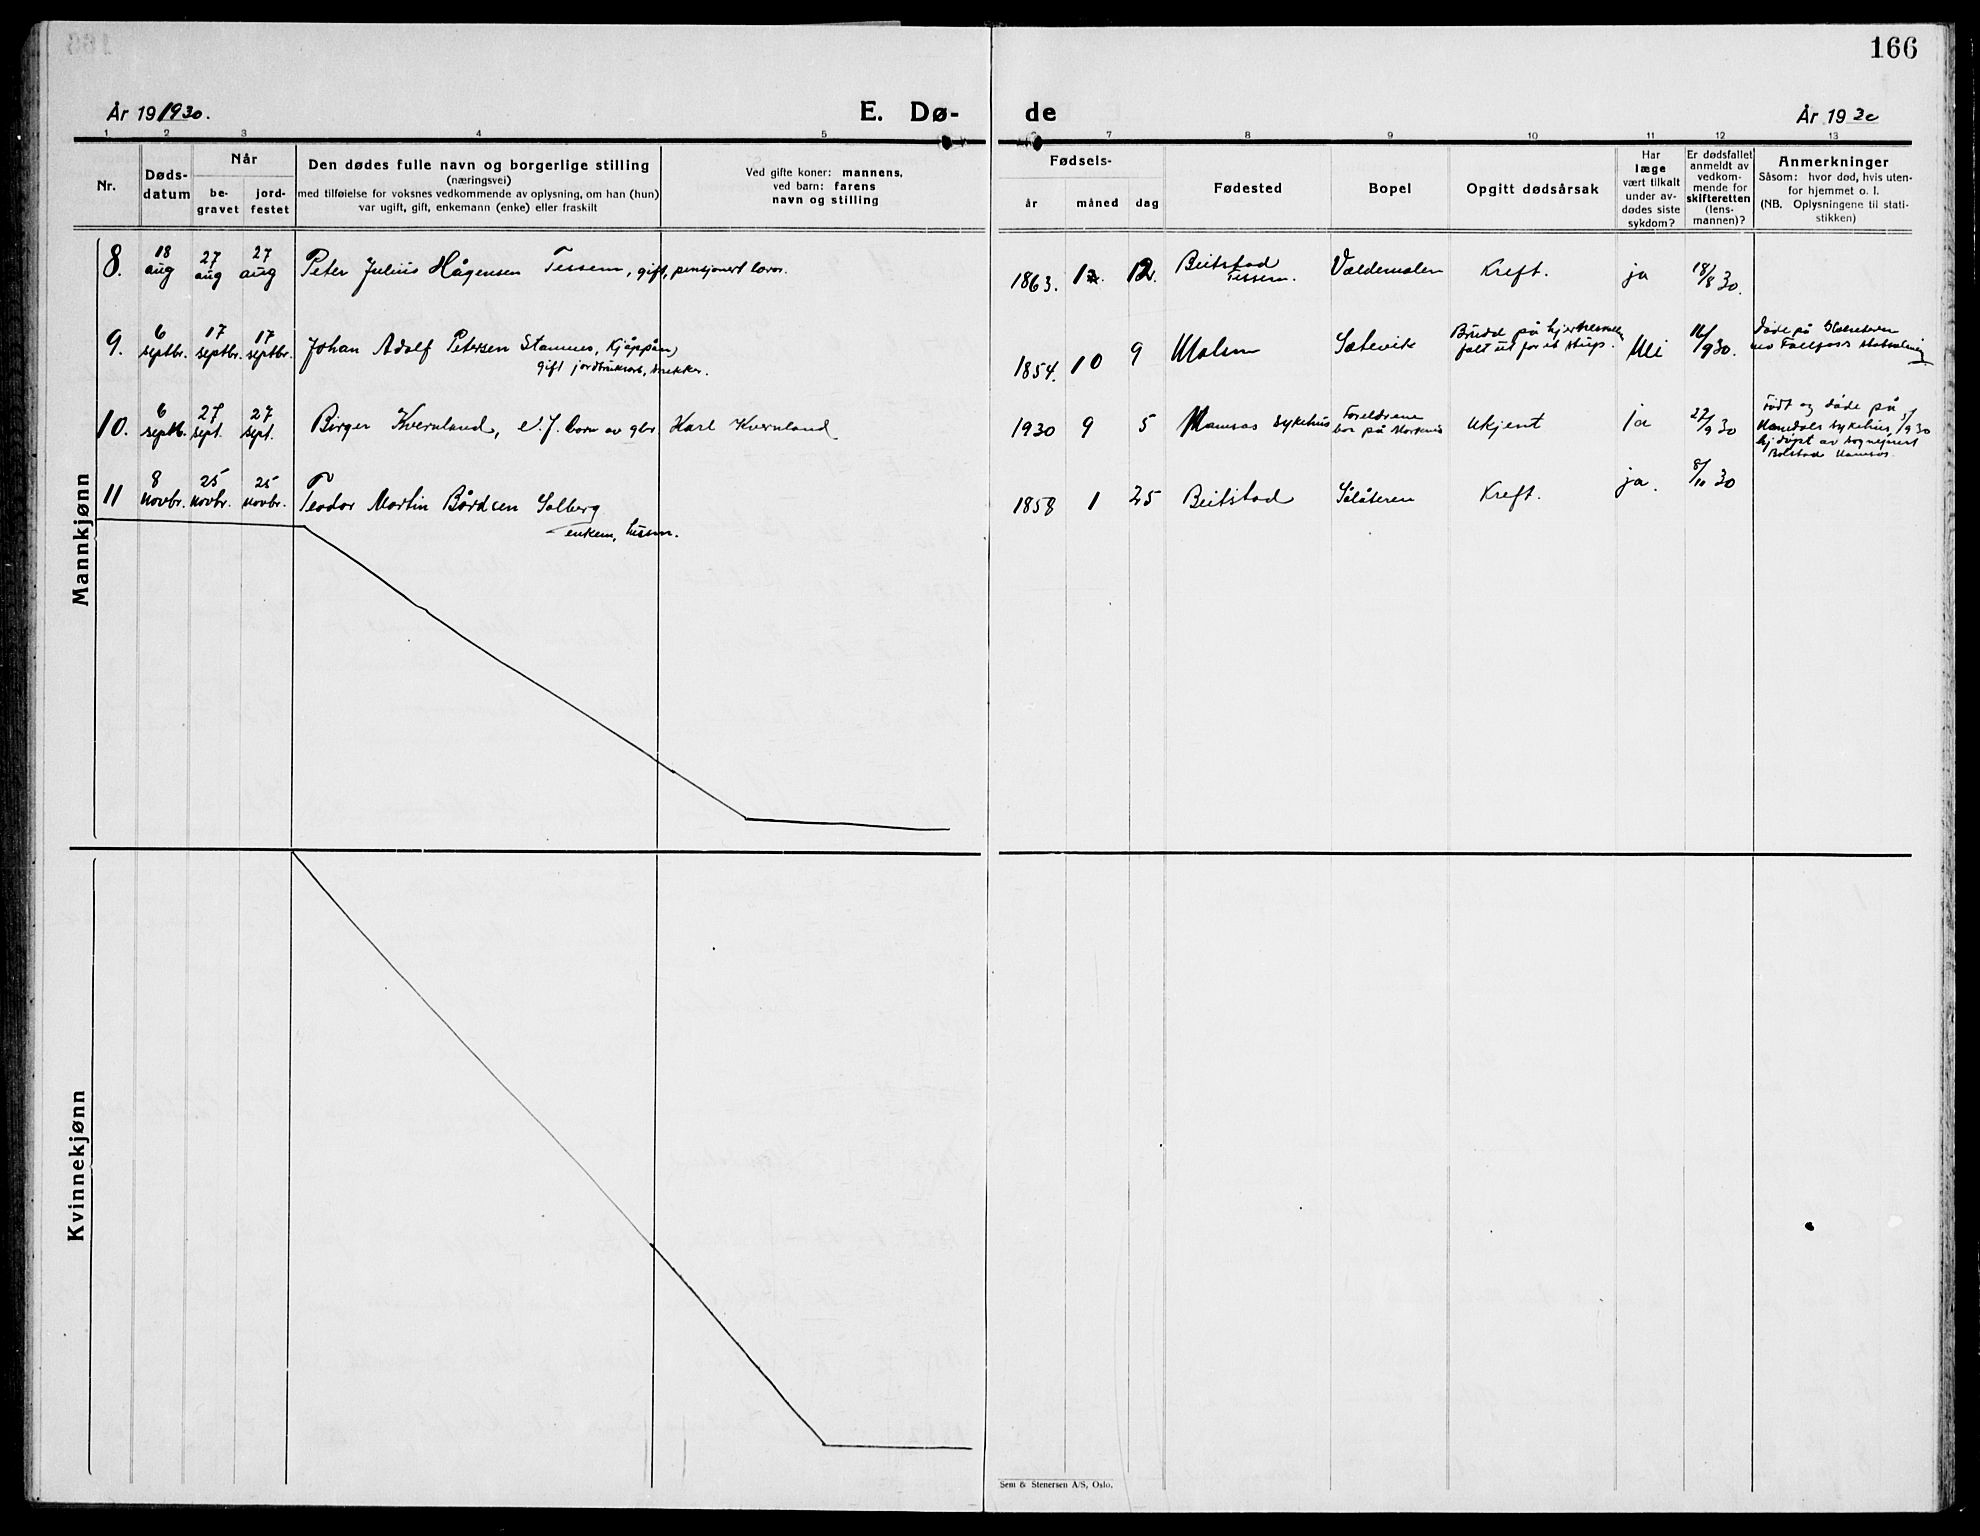 166
År 19 1930.
E. Dø-
de
År 19 30
1 2 3 4 5 6 7 8 9 10 11 12 13
Nr.
Døds-
datum
Når
be-
gravet
jord-
festet
Den dødes fulle navn og borgerlige stilling
(næringsvei)
med tilføielse for voksnes vedkommende av oplysning, om han (hun)
var ugift, gift, enkemann (enke) eller fraskilt
Ved gifte koner: mannens,
ved barn: farens
navn og stilling
Fødsels-
år måned dag
Fødested
Bopel
Opgitt dødsårsak
Har
læge
vært tilkalt
under av-
dødes siste
sykdom?
Er dødsfallet
anmeldt av
vedkom-
mende for
skifteretten
(lens-
mannen)?
Anmerkninger
Såsom: hvor død, hvis uten-
for hjemmet o. l.
(NB. Oplysningene til stati-
stikken)
Mannkjønn
8. 18 aug 27 aug 27 aug Peter Julius Hågensen Tessem, gift, pensjonert 1863. 12. 12. Beitstad Tessem. Kreft. ja 18/8 30.
9. 6 septbr. 17 septbr. 17 septbr. Johan Adolf Petersen Stamnes,
gift 1854. 10 9 Malm Brudd på
falt ut for et stup. 16/9 30. døde på
10. 6 septb. 27 sept. 27 sept. Birger Kvernland, e. f. barn av gbr. Karl Kvernland 1930 9 5 Namsos sykehus Foreldrene
bor på Ukjent ja 27/9 30 Født og døde på
Namdals sykehus 5/9 30
hj.døpt av sogneprest
Bolstad Namsos.
11 8 novbr. 25 novbr. 25 novbr. Teodor Martin Bårdsen Solberg
enkem, 1858 1 25 Beitstad Kreft. ja. 30
Kvinnekjønn
Sem & Stenersen A/S, Oslo.